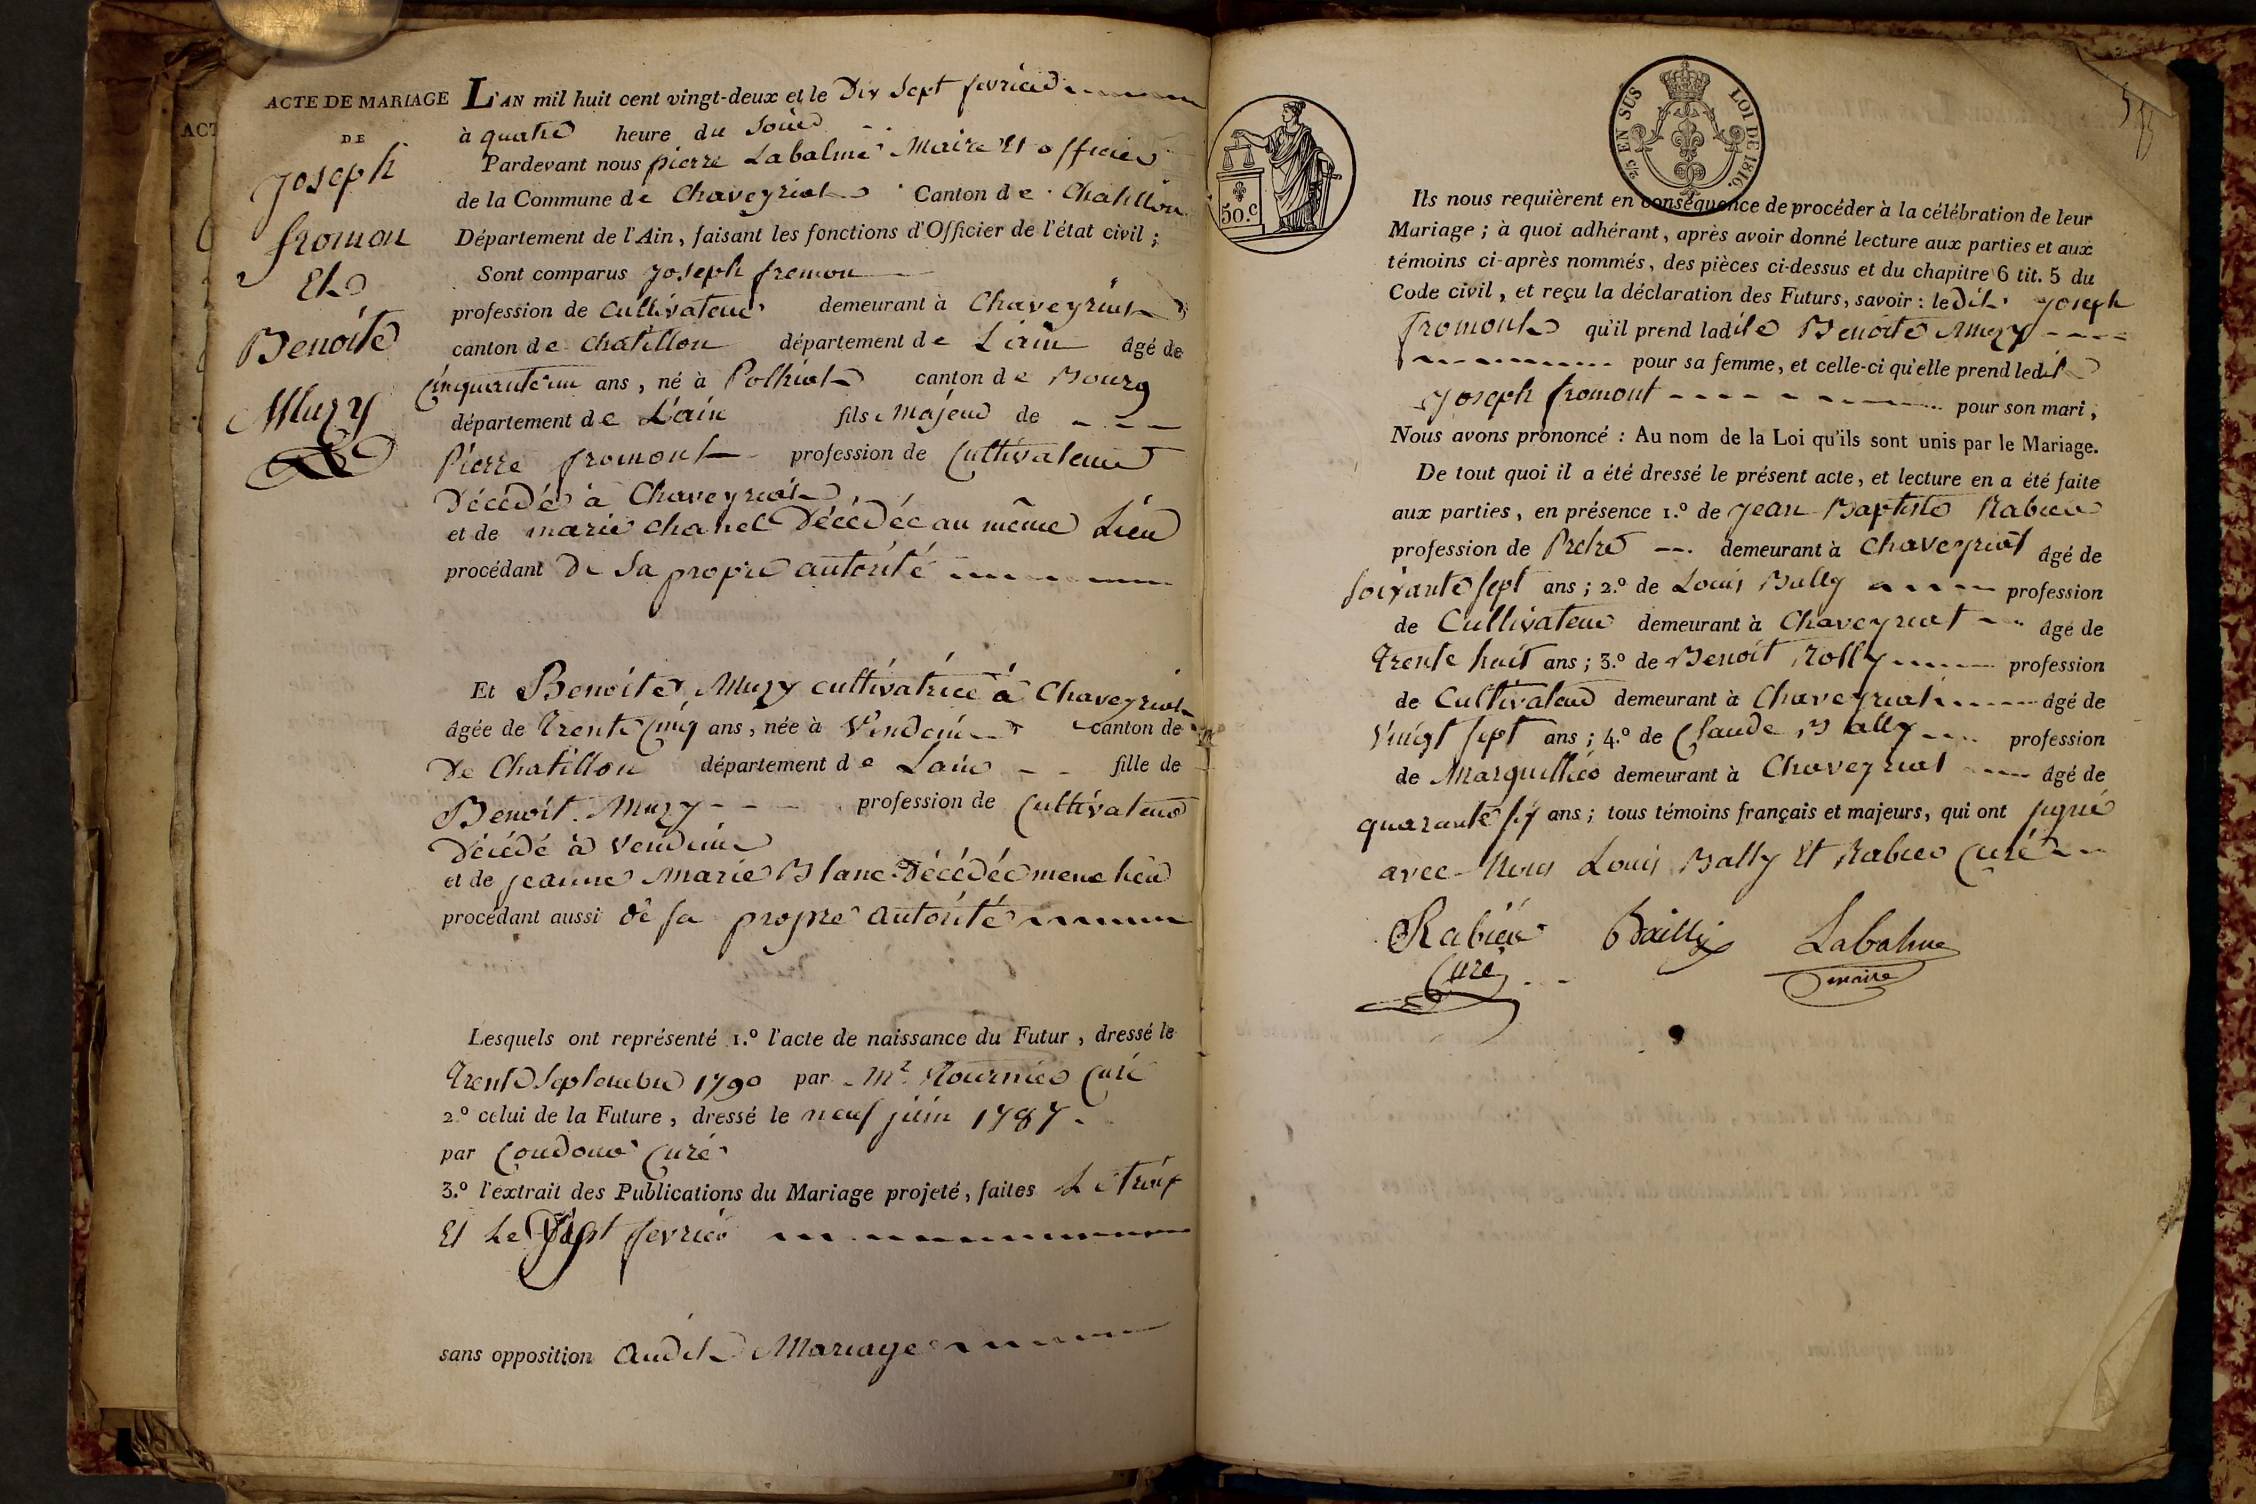 ACTE DE MARIAGE
DE
Joseph
fromon
Et
Benoite
Muzy
L'AN mil huit cent vingt-deux et le Dix Sept fevrier
à quatre heure du Soir
Pardevant nous pierre Labalme Maire Et officier
de la Commune de Chaveyriat Canton de Chatillon
Département de l'Ain, faisant les fonctions d'Officier de l'état civil ;
Sont comparus Joseph fromon
profession de Cultivateur demeurant à Chaveyriat
canton de Chatillon département de L'ain âgé de
Cinquante un ans, né à Polliat canton de Bourg
département de L'ain fils Majeur de
Pierre fromont profession de Cultivateur
Décédé à Chaveyriat
et de marie chanel Décédée au même Lieu
procédant De Sa propre autorité
Et Benoite Muzy cultivatrice à Chaveyriat
âgée de Trente Cinq ans, née à Vendeins canton de
De Chatillon département de Lain fille de
Benoit Muzy profession de Cultivateur
Décédé à Vendeins
et de jeanne Marie Blanc Décédée meme lieu
procédant aussi de sa propre autorité
Lesquels ont représenté 1.º l'acte de naissance du Futur, dressé le
Trente Septembre 1790 par Mr. Curé
2º celui de la Future, dressé le neuf juin 1787
par Curé
3.º l'extrait des Publications du Mariage projeté, faites Le trois
Et Le fevrier
sans opposition audit Mariage
50.c
2/5 EN SUS LOI DE 1816.
Ils nous requièrent en conséquence de procéder à la célébration de leur
Mariage ; à quoi adhérant, après avoir donné lecture aux parties et aux
témoins ci-après nommés, des pièces ci-dessus et du chapitre 6 tit. 5 du
Code civil, et reçu la déclaration des Futurs, savoir : ledit Joseph
fromont qu'il prend ladite Benoite Muzy
pour sa femme, et celle-ci qu'elle prend ledit
Joseph fromont pour son mari,
Nous avons prononcé : Au nom de la Loi qu'ils sont unis par le Mariage.
De tout quoi il a été dressé le présent acte, et lecture en a été faite
aux parties, en présence 1.º de Jean Baptiste Rabier
profession de Pretre demeurant à Chaveyriat âgé de
soixante sept ans ; 2.º de Louis Bally profession
de Cultivateur demeurant à Chaveyriat âgé de
Trente huit ans ; 3.º de Benoit Rolly profession
de Cultivateur demeurant à Chaveyriat âgé de
Vingt sept ans ; 4.º de Claude Bally profession
de Marguillier demeurant à Chaveyriat âgé de
quarante six ans ; tous témoins français et majeurs, qui ont signé
avec Nous Louis Bally Et Rabier Curé
Rabier Bailly Labalme
Curé maire